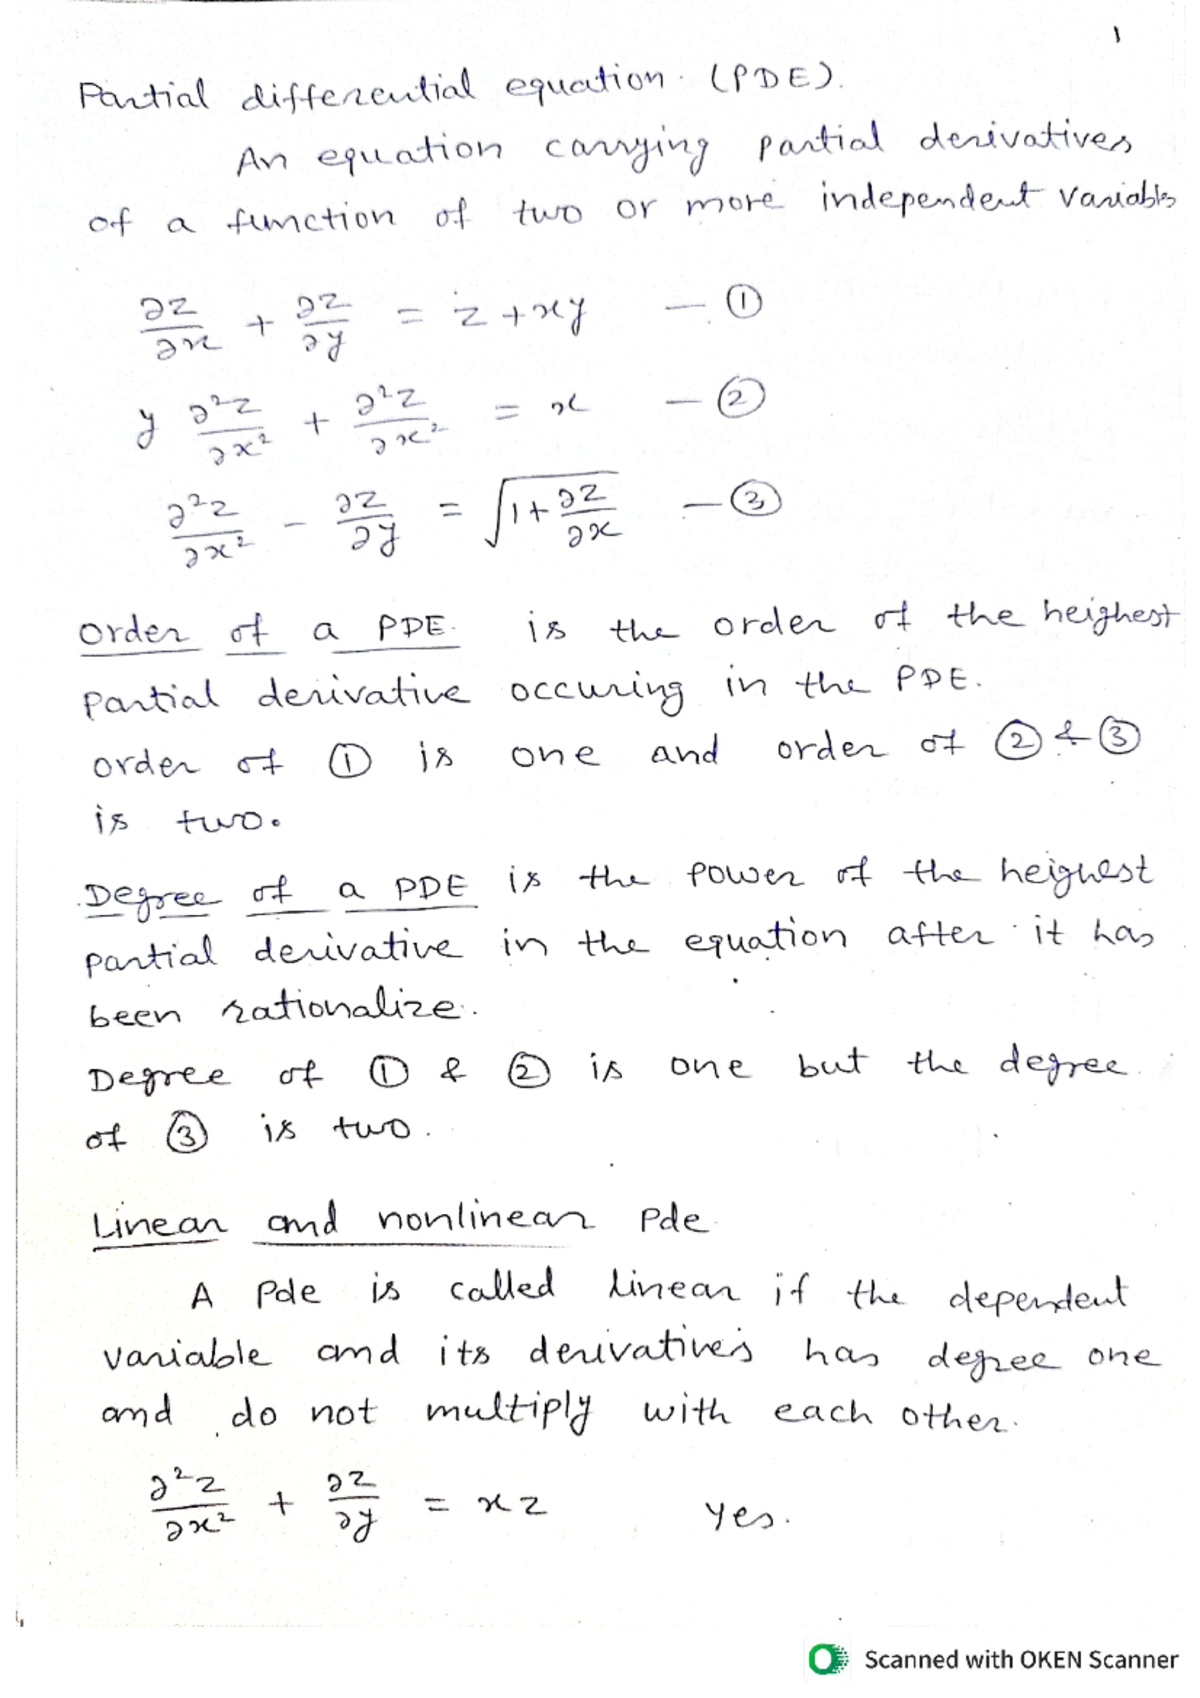 1
Partial differential equation. (PDE).
An equation carrying partial derivatives
of a function of two or more independent variables
∂z/∂x + ∂z/∂y = z + xy — ①
y ∂²z/∂x² + ∂²z/∂x² = x — ②
∂²z/∂x² - ∂z/∂y = √(1 + ∂z/∂x) — ③
Order of a PDE. is the order of the heighest
partial derivative occuring in the PDE.
order of ① is one and order of ② & ③
is two.
Degree of a PDE is the power of the heighest
partial derivative in the equation after it has
been rationalize.
Degree of ① & ② is one but the degree
of ③ is two.
Linear and nonlinear Pde
A Pde is called linear if the dependent
variable and its derivatives has degree one
and do not multiply with each other.
∂²z/∂x² + ∂z/∂y = xz yes.
Scanned with OKEN Scanner